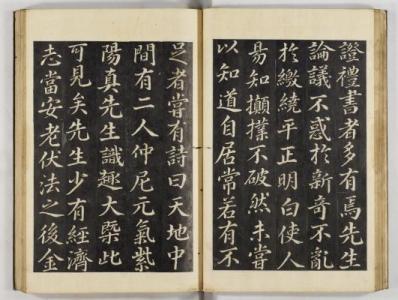 證禮書者多有焉先生
論議不惑於新奇不亂
於繳繞平正明白使人
易知攧撲不破然未嘗
以知道自居常若有不
足者嘗有詩曰天地中
間有二人仲尼元氣紫
陽真先生識趣大槩此
可見矣先生少有經濟
志當安老伏法之後金